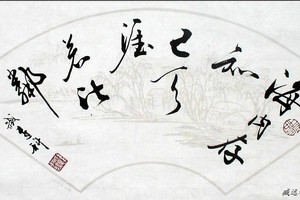 海内存
知
己天
涯
若比
鄰